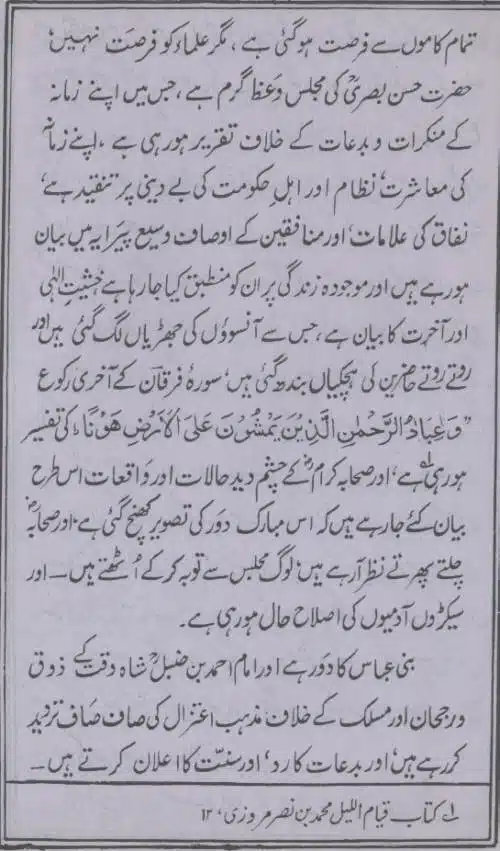 تمام کاموں سے فرصت ہوگئی ہے، مگر علماء کو فرصت نہیں،
حضرت حسن بصریؒ کی مجلس وعظ گرم ہے، جس میں اپنے زمانہ
کے منکرات و بدعات کے خلاف تقریر ہورہی ہے، اپنے زمانہ
کی معاشرت، نظام اور اہل حکومت کی بے دینی پر تنقید ہے،
نفاق کی علامات، اور منافقین کے اوصاف وسیع پیرایہ میں بیان
ہورہے ہیں اور موجودہ زندگی پر ان کو منطبق کیا جارہا ہے خشیتِ الٰہی
اور آخرت کا بیان ہے، جس سے آنسوؤں کی جھڑیاں لگ گئی ہیں اور
روتے روتے حاضرین کی ہچکیاں بندھ گئی ہیں، سورۂ فرقان کے آخری رکوع
”وَعِبَادُ الرَّحْمٰنِ الَّذِیْنَ یَمْشُوْنَ عَلَی الْاَرْضِ هَوْنًا“ کی تفسیر
ہورہی ہے، اور صحابہ کرامؓ کے چشم دید حالات اور واقعات اس طرح
بیان کئے جارہے ہیں کہ اس مبارک دور کی تصویر کھنچ گئی ہے، اور صحابہؓ
چلتے پھرتے نظر آرہے ہیں، لوگ مجلس سے توبہ کرکے اُٹھتے ہیں ــ اور
سیکڑوں آدمیوں کی اصلاح حال ہورہی ہے۔
بنی عباس کا دور ہے اور امام احمد بن حنبلؒ شاہ وقت کے ذوق
و رجحان اور مسلک کے خلاف مذہب اعتزال کی صاف صاف تردید
کررہے ہیں، اور بدعات کا رد، اور سنّت کا اعلان کرتے ہیں ــ
لے کتاب قیام اللیل محمد بن نصر مروزی، ۱۲